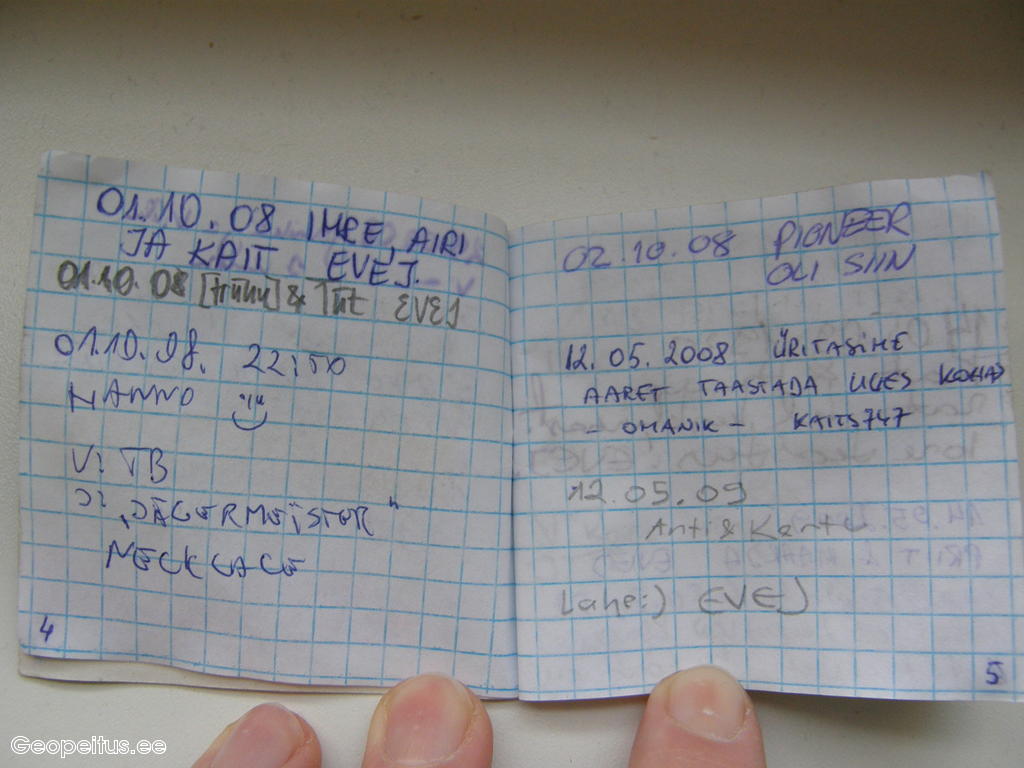 01.10.08 IMRE, AIRI
JA KAIT EVEJ.
01.10.08 & Tiit EVEJ
01.10.08. 22:50
HANNO
V: TB
J: "JÄGERMEISTER"
NECKLACE
4
02.10.08 PIONEER
OLI SIIN
12.05.2008 ÜRITASIME
AARET TAASTADA UUES KOHAS
- OMANIK - KAITS747
12.05.09
Anti & Kantu
Lahe:) EVEJ
5
Geopeitus.ee